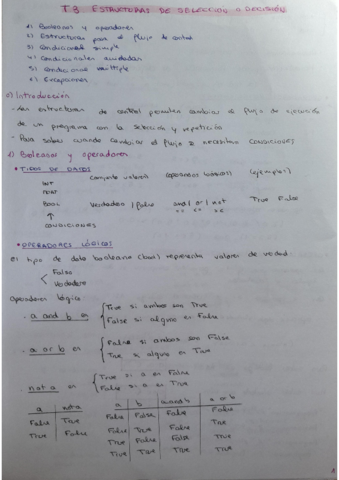 T.3 ESTRUCTURAS DE SELECCIÓN O DECISIÓN
1) Booleanos y operadores
2) Estructuras para el flujo de control
3) Condicional simple
4) Condicionales anidadas
5) Condicional múltiple
6) Excepciones
0) Introducción
- Las estructuras de control permiten cambiar el flujo de ejecución
de un programa con la selección y repetición
- Para saber cuando cambiar el flujo se necesitan CONDICIONES
1) Booleanos y operadores
• TIPOS DE DATOS
conjunto valores (operaciones básicas) (ejemplos)
INT
FLOAT
BOOL Verdadero / false and / or / not True False
↑
CONDICIONES
• OPERADORES LÓGICOS
El tipo de dato booleano (bool) representa valores de verdad
False
Verdadero
Operadores lógicos
- a and b es True si ambos son True
False si alguno es False
- a or b es False si ambos son False
True si alguno es True
- not a es True si a es False
False si a es True
a not a
False True
True False
a b a and b a or b
False False False False
False True False True
True False False True
True True True True